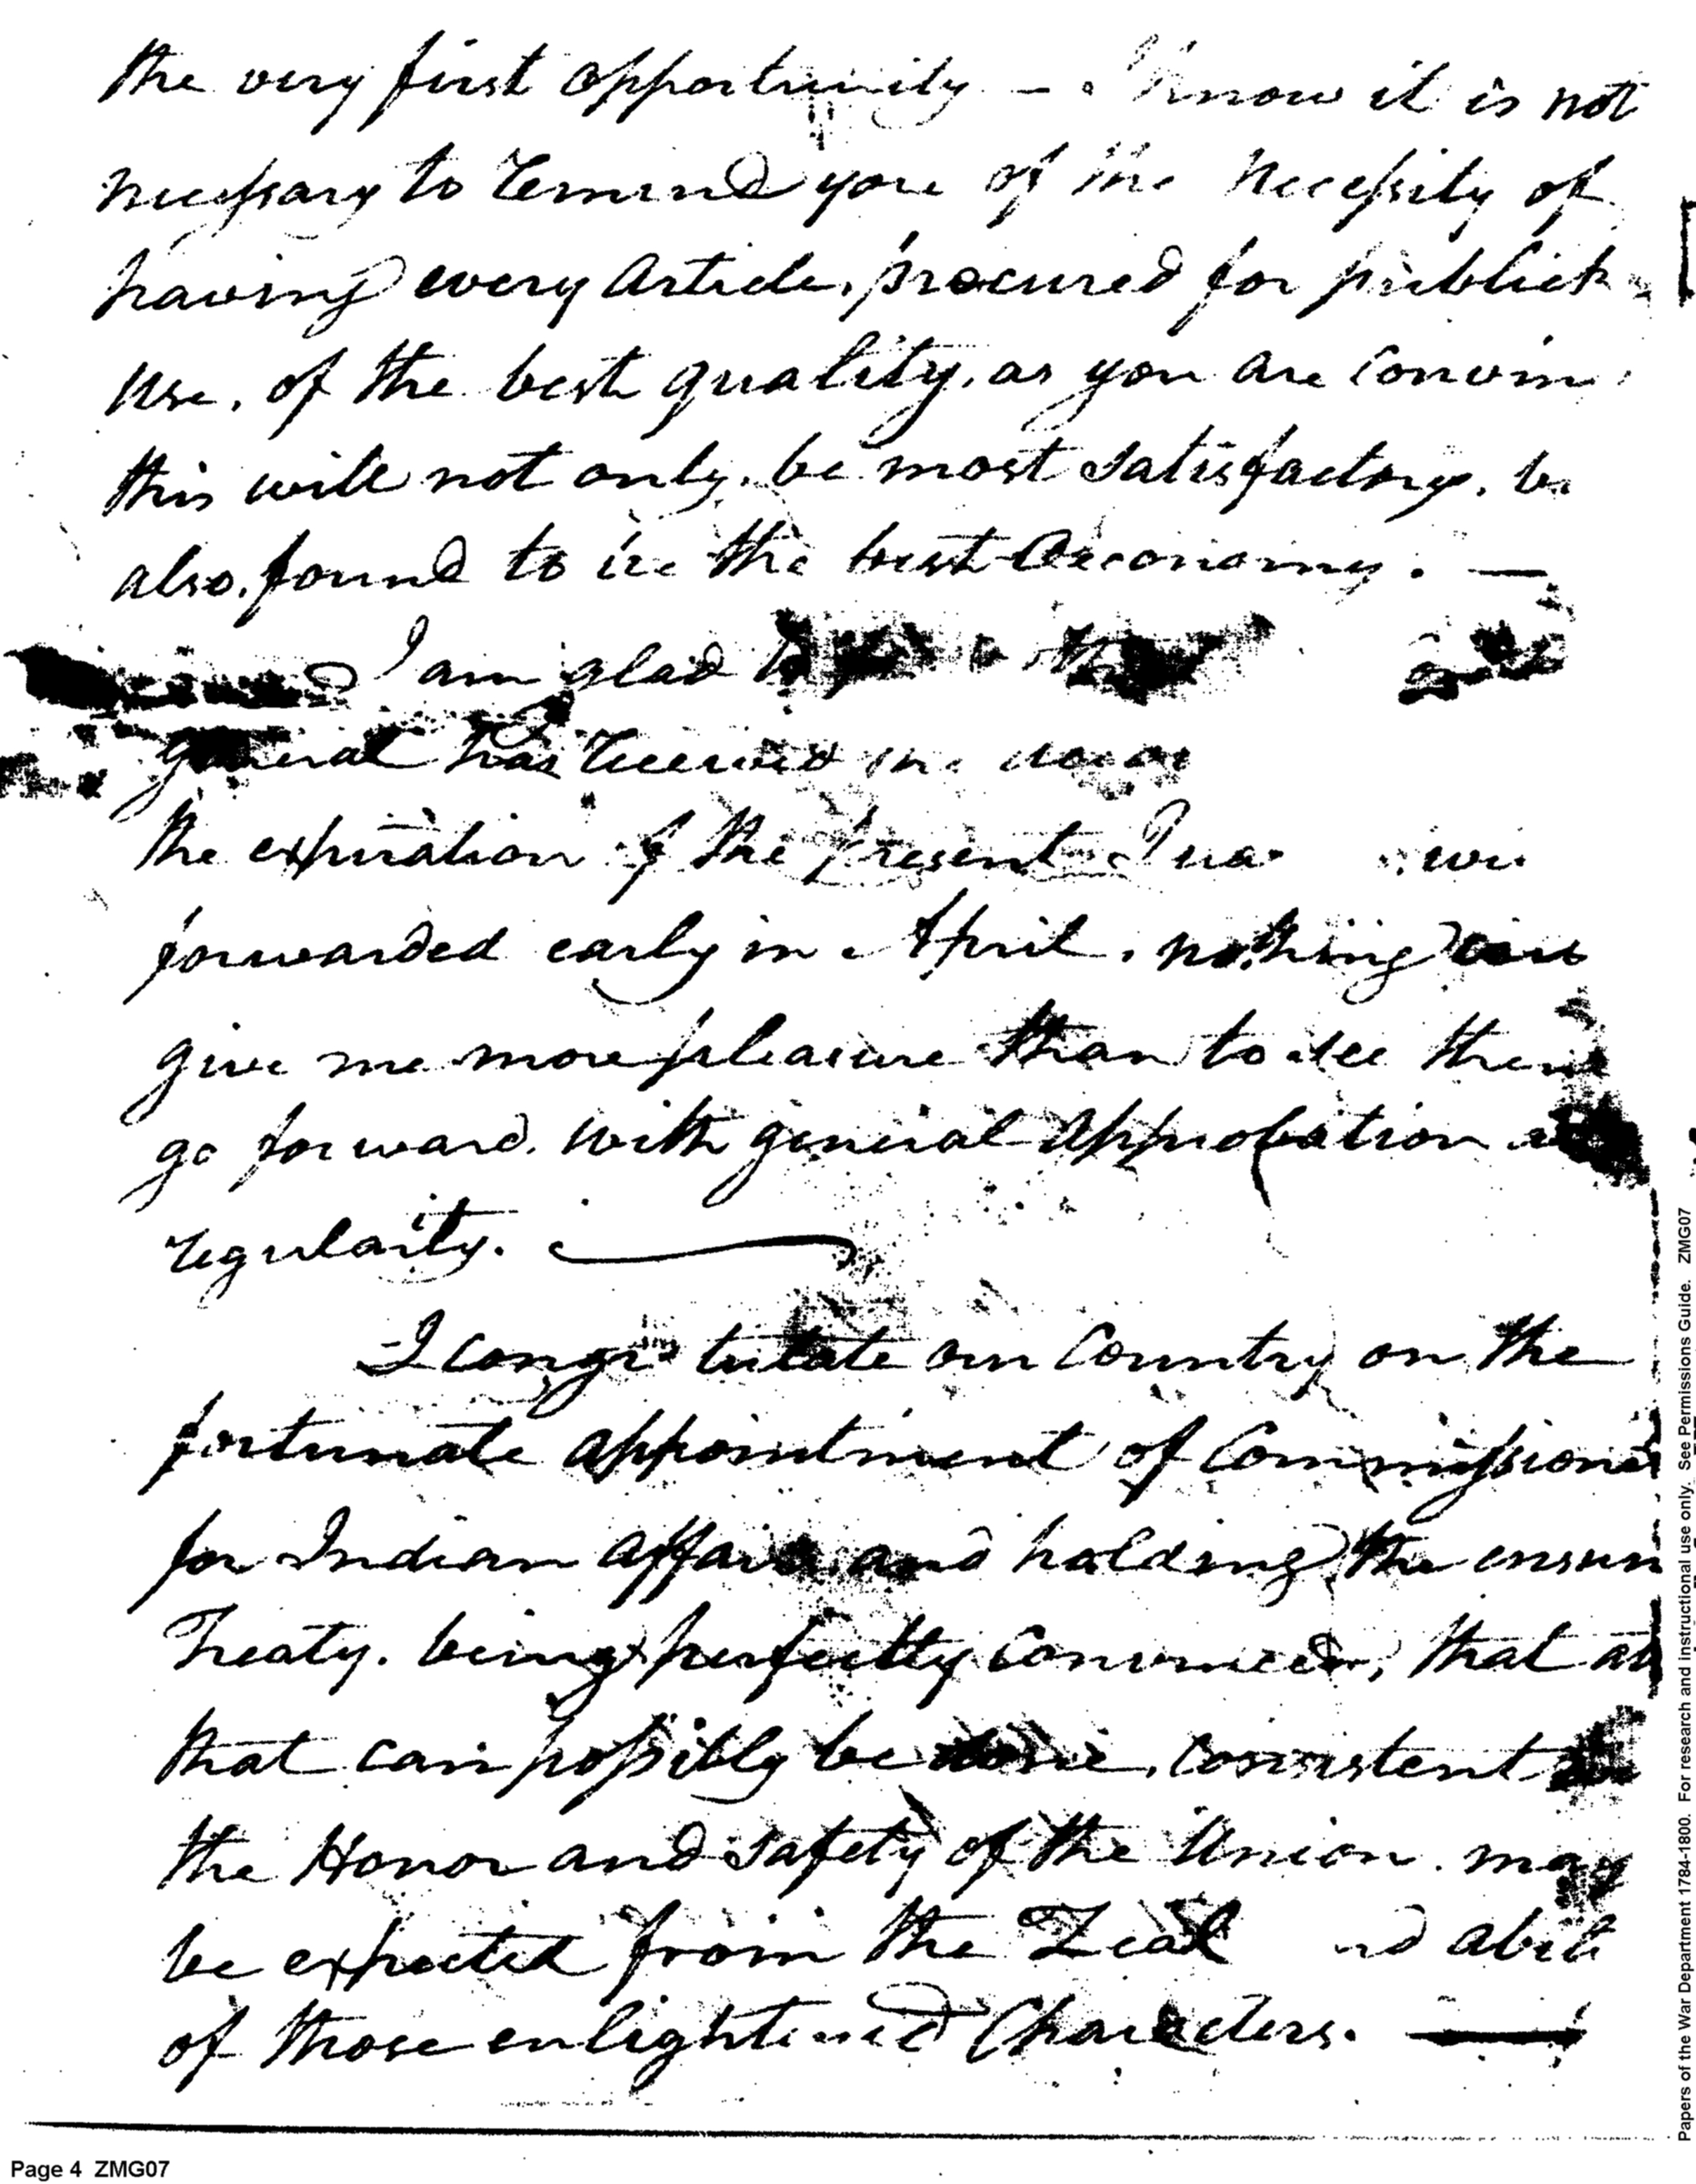 the very first opportunity — I know it is not
necessary to remind you of the necessity of
having every Article, procured for publick
use, of the best quality, as you are
this will not only, be most satisfactory,
also, found to be the best Oeconomy. —
I am glad
general has received the
the expiration of the present
forwarded early in April, nothing
give me more pleasure than to see them
go forward, with general approbation
regularity.
I congratulate our Country on the
fortunate appointment of
for Indian affairs and holding the
Treaty. being perfectly convinced, that
that can possibly be done, consistent
the Honor and safety of the Union. may
be expected from the Zeal
of those enlightened Characters. —
Page 4 ZMG07
Papers of the War Department 1784-1800. For research and instructional use only. See Permissions Guide. ZMG07